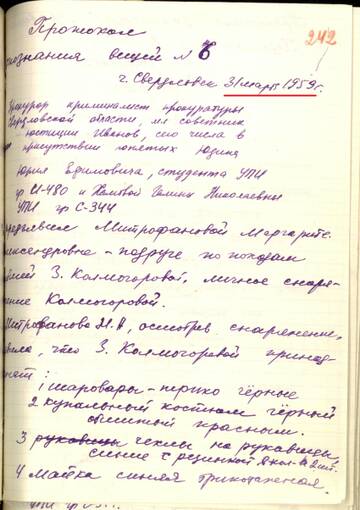 242
Протокол
опознания вещей № 6
г. Свердловск 31 марта 1959 г.
Прокурор криминалист прокуратуры
Свердловской области, мл советник
юстиции Иванов, сего числа в
присутствии понятых Юдина
Юрия Ефимовича, студента УПИ
гр И-480 и Николаевны
УПИ гр С-344
Митрофановой Маргарите
Александровне - подруге по походам
З. Колмогоровой, личное снаря-
жение Колмогоровой.
Митрофанова М.А, осмотрев снаряжение,
что З. Колмогоровой принад-
лежат:
1 шаровары - трико чёрные
2 купальный костюм чёрный
обшитый красным.
3 рукавицы чехлы на рукавицы,
синие с резинкой 2 шт.
4 Майка синяя трикотажная.